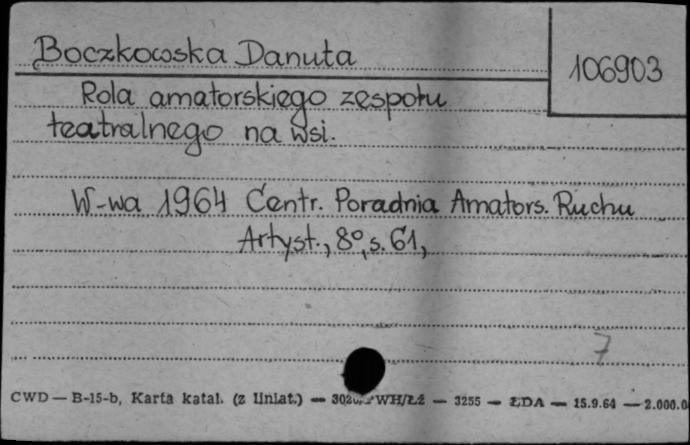 Boczkowska Danuta
106903
Rola amatorskiego zespołu
teatralnego na wsi.
W-wa 1964 Centr. Poradnia Amators. Ruchu
Artyst., 8°, s. 61,
7
CWD — B-15-b, Karta katal. (z liniat.) — WH/ŁŻ — 3255 — ŁDA — 15.9.64 — 2.000.0